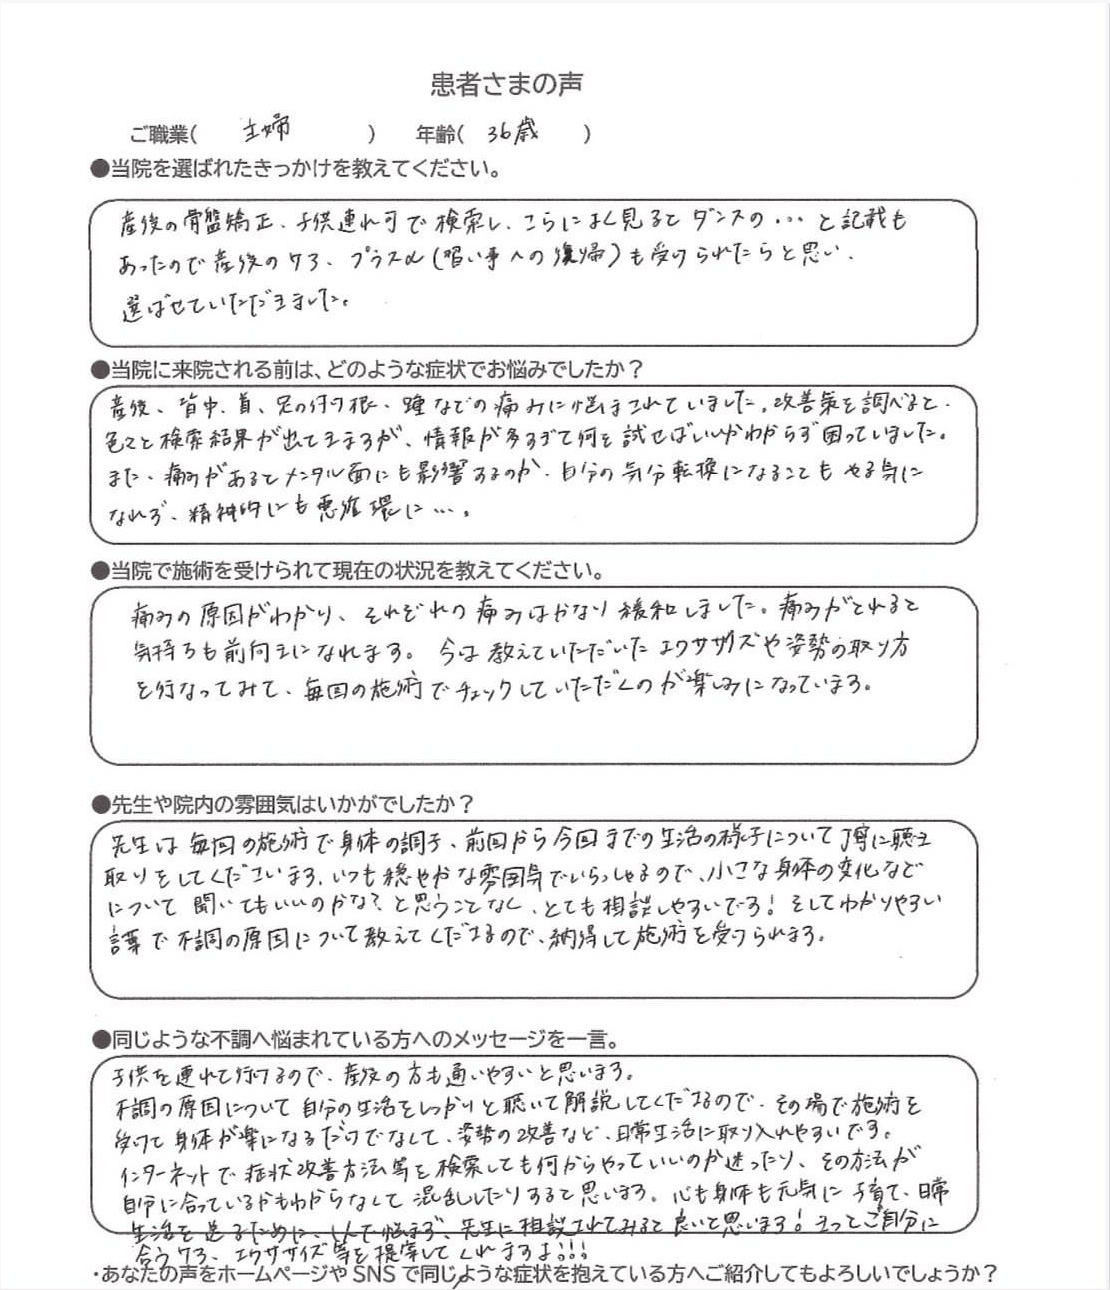 患者さまの声
ご職業( 主婦 ) 年齢( 36歳 )
●当院を選ばれたきっかけを教えてください。
産後の骨盤矯正、子供連れ可で検索し、さらによく見るとダンスの…と記載も
あったので産後のケア、プラスα(習い事への復帰)も受けられたらと思い、
選ばせていただきました。
●当院に来院される前は、どのような症状でお悩みでしたか？
産後、背中、首、足の付け根、踵などの痛みに悩まされていました。改善策を調べると、
色々と検索結果が出てきますが、情報が多すぎて何を試せばいいかわからず困っていました。
また、痛みがあるとメンタル面にも影響するのか、自分の気分転換になることもやる気に
なれず、精神的にも悪循環に…。
●当院で施術を受けられて現在の状況を教えてください。
痛みの原因がわかり、それぞれの痛みはかなり緩和しました。痛みがとれると
気持ちも前向きになれます。今は教えていただいたエクササイズや姿勢の取り方
を行なってみて、毎回の施術でチェックしていただくのが楽しみになっています。
●先生や院内の雰囲気はいかがでしたか？
先生は毎回の施術で身体の調子、前回から今回までの生活の様子について丁寧に聴き
取りをしてくださいます。いつも穏やかな雰囲気でいらっしゃるので、小さな身体の変化など
について聞いてもいいのかな？と思うことなく、とても相談しやすいです！そしてわかりやすい
言葉で不調の原因について教えてくださるので、納得して施術を受けられます。
●同じような不調へ悩まれている方へのメッセージを一言。
子供を連れて行けるので、産後の方も通いやすいと思います。
不調の原因について自分の生活をしっかりと聴いて解説してくださるので、その場で施術を
受けて身体が楽になるだけでなくて、姿勢の改善など、日常生活に取り入れやすいです。
インターネットで症状改善方法等を検索しても何からやっていいのか迷ったり、その方法が
自分に合っているかもわからなくて混乱したりすると思います。心も身体も元気に子育て、日常
生活を送るために、1人で悩まず、先生に相談されてみると良いと思います！きっとご自分に
合うケア、エクササイズ等を提案してくれますよ!!!
・あなたの声をホームページやSNSで同じような症状を抱えている方へご紹介してもよろしいでしょうか？